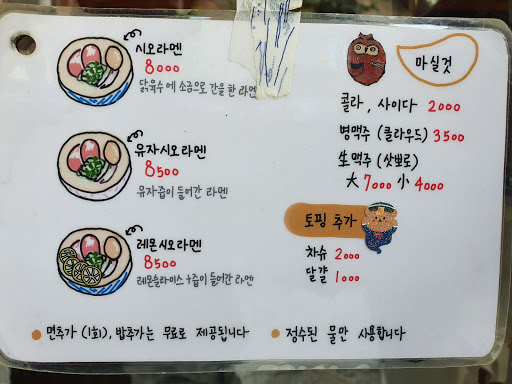 시오라멘
8000
닭육수에 소금으로 간을 한 라멘
유자시오라멘
8500
유자즙이 들어간 라멘
레몬시오라멘
8500
레몬슬라이스 +즙이 들어간 라멘
마실것
콜라, 사이다 2000
병맥주 (클라우드) 3500
生맥주 (삿뽀로)
大 7000 小 4000
토핑 추가
차슈 2000
달걀 1000
면추가 (1회), 밥추가는 무료로 제공됩니다
정수된 물만 사용합니다